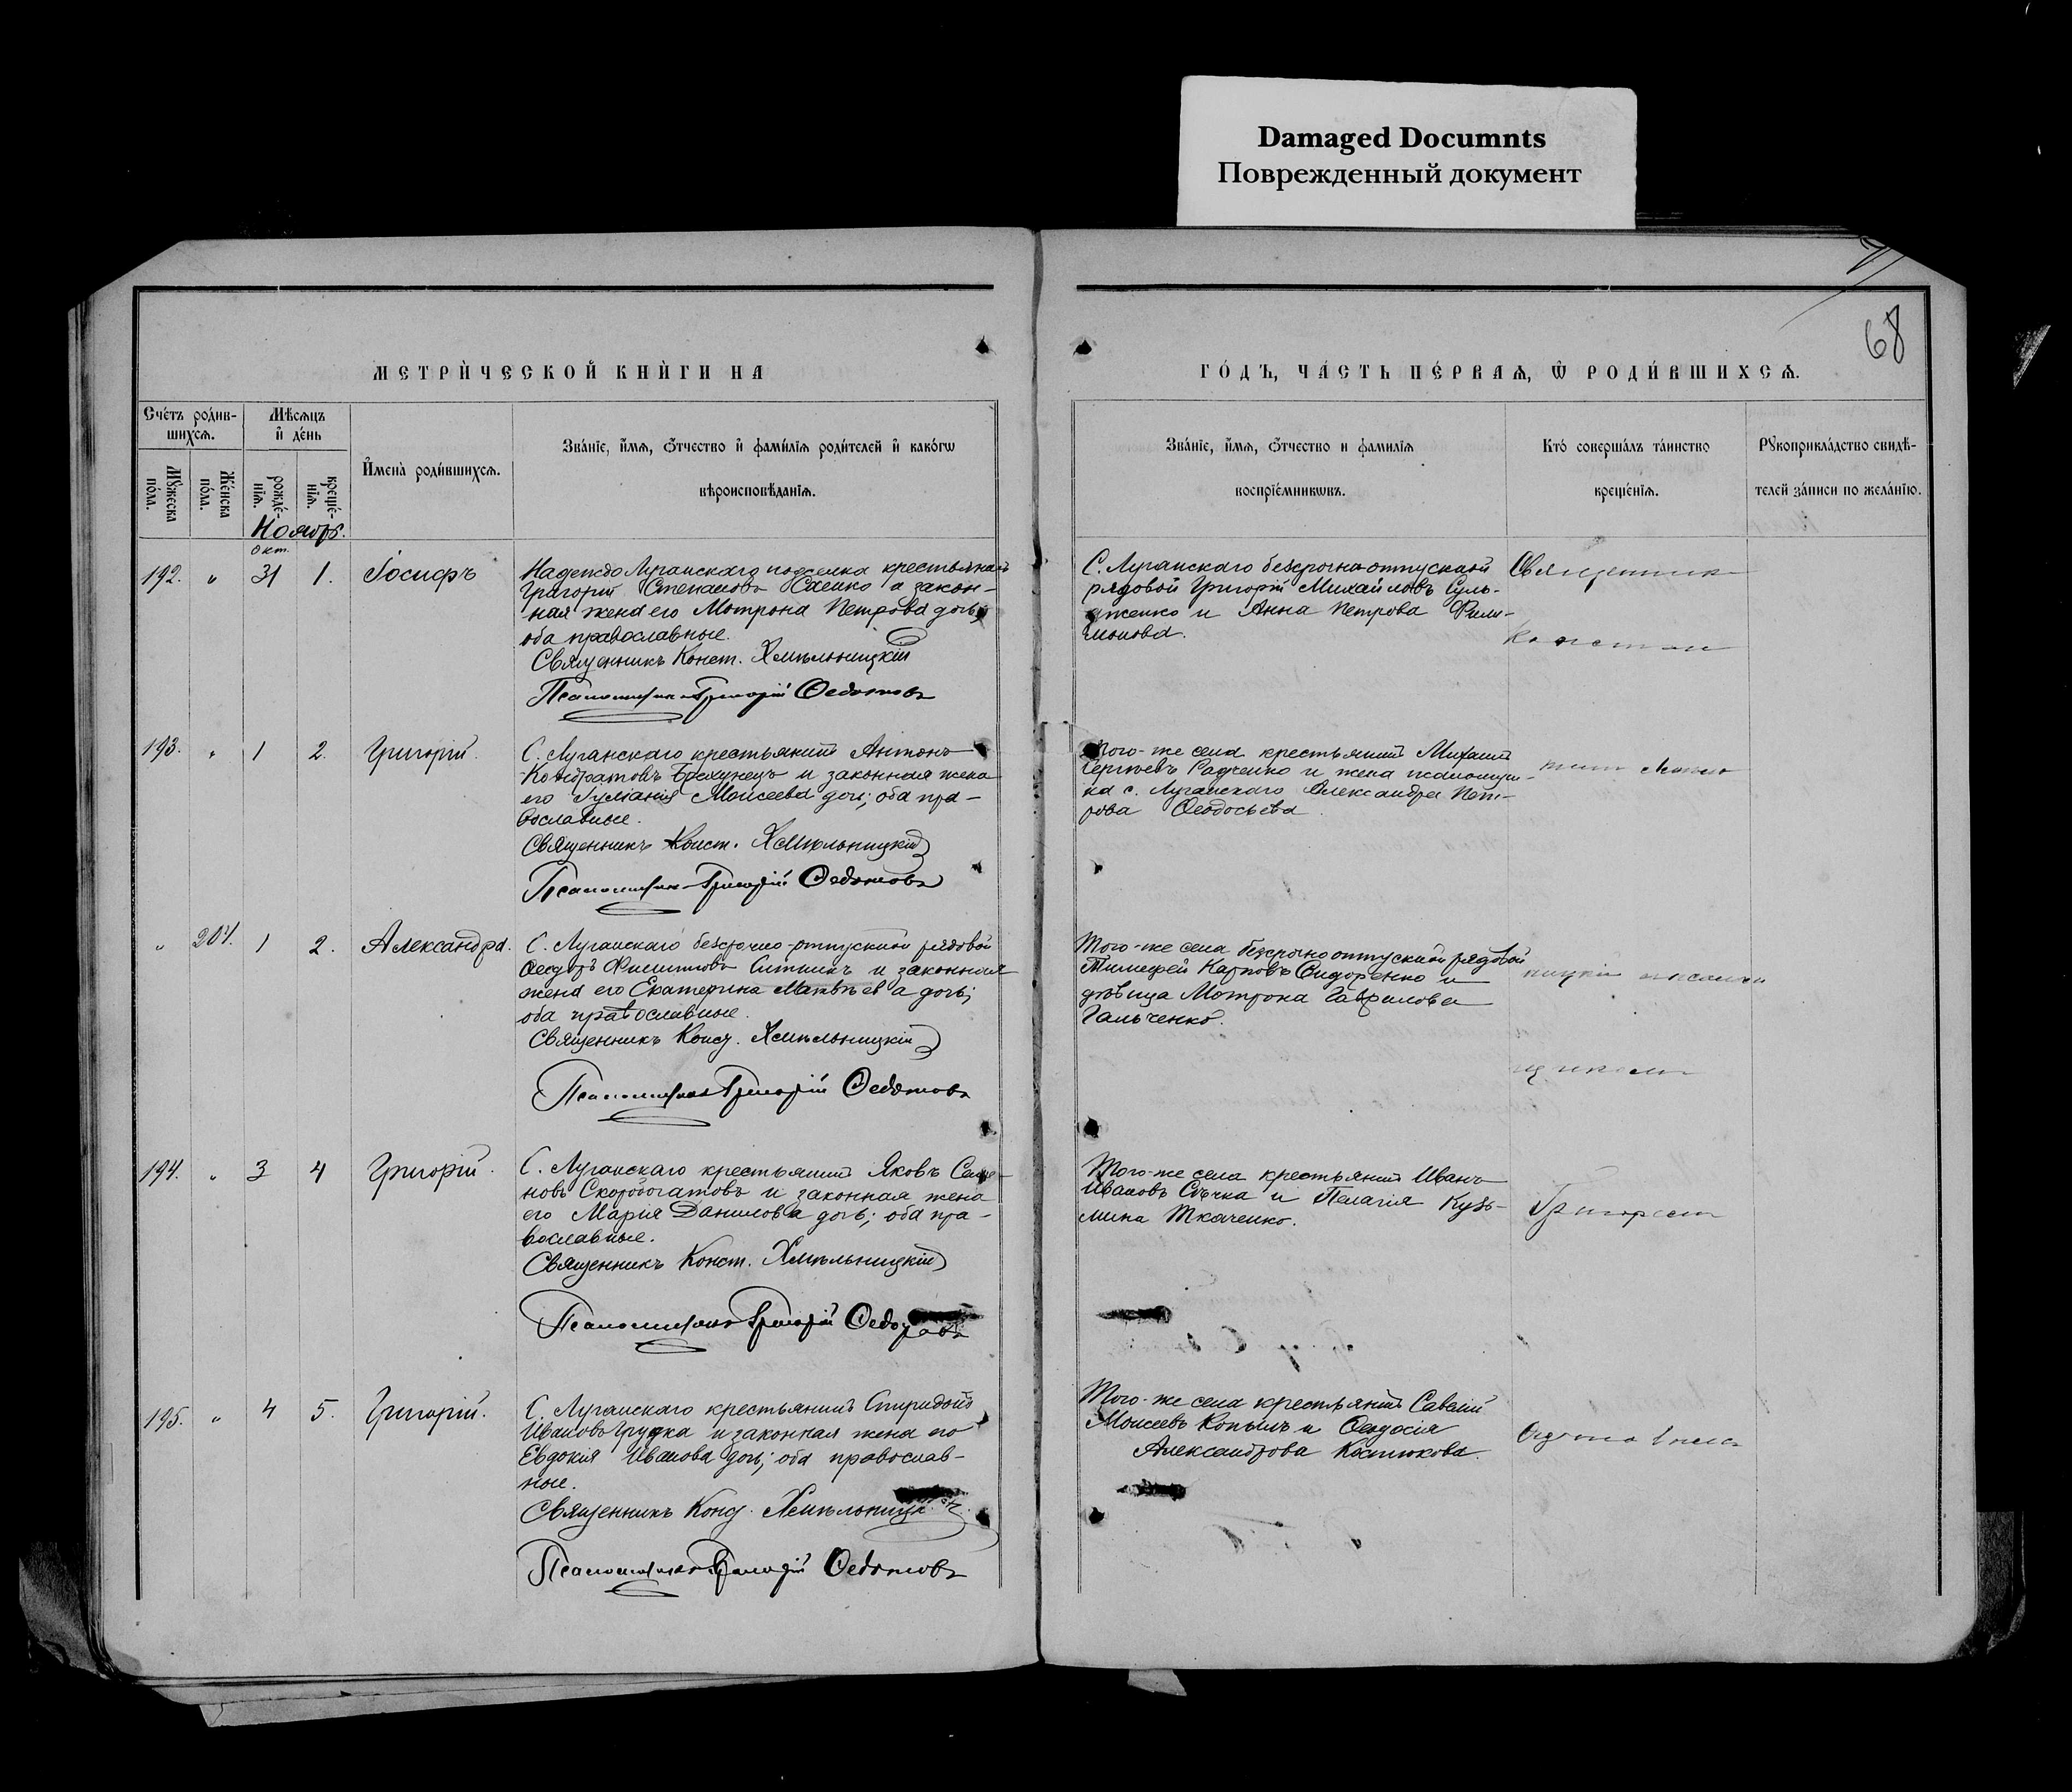 Damaged Documnts
Поврежденный документ
68
МЕТРИ́ЧЕСКОЙ КНИ́ГИ НА
ГО́ДЪ, ЧА́СТЬ ПЕ́РВАѦ, Ѿ РОДИ́ВШИХСѦ.
Сче́тъ роди́в-
шихсѧ.
Мѣ́сѧцъ
и҆ де́нь
И҆мена̀ роди́вшихсѧ.
Зва́нїе, и҆́мѧ, ѻ҆́тчество и҆ фами́лїѧ роди́телей и҆ како́гѡ
вѣроисповѣ́данїѧ.
Мꙋ́жеска
по́ла.
Же́нска
по́ла.
рожде́-
нїѧ.
креще́-
нїѧ.
Зва́нїе, и҆́мѧ, ѻ҆́тчество и фамилїѧ
воспрїе́мникѡвъ.
Кто̀ соверша́лъ та́инство
креще́нїѧ.
Рꙋкоприкла́дство свидѣ́-
телей за́писи по жела́нїю.
Ноябрь.
окт.
192. " 31 1. Іосифъ
Луганскаго поселка крестьянинъ
Григорій Степановъ и закон-
ная жена его Мотрона Петрова дочь;
оба православные.
Священникъ Конст. Хмѣльницкій
Псаломщикъ Григорій Ѳедотовъ
С. Луганскаго безсрочно-отпускной
рядовой Григорій Михайловъ Суль-
женко и Анна Петрова Фили-
монова.
Священник
Констан
193. " 1 2. Григорій.
С. Луганскаго крестьянинъ Антонъ
Кондратовъ и законная жена
его Іуліанія Моисеева дочь; оба пра-
вославные.
Священникъ Конст. Хмѣльницкій
Псаломщикъ Григорій Ѳедотовъ
Того-же села крестьянинъ Михаилъ
Сергѣевъ Радченко и жена псаломщи-
ка с. Луганскаго Александра Пет-
рова Ѳеодосьева.
" 204. 1 2. Александра.
С. Луганскаго безсрочно-отпускной рядовой
Ѳеодоръ Филипповъ Ситникъ и законная
жена его Екатерина Матвѣева дочь;
оба православные.
Священникъ Конст. Хмѣльницкій
Псаломщикъ Григорій Ѳедотовъ
Того-же села безсрочноотпускной рядовой
Тимофей Карповъ Сидоренко и
дѣвица Мотрона Гаврилова
Гальченко.
ницкій
194. " 3 4 Григорій.
С. Луганскаго крестьянинъ Яковъ
новъ Скоробогатовъ и законная жена
его Марія Данилова дочь; оба пра-
вославные.
Священникъ Конст. Хмѣльницкій
Псаломщикъ Григорій
Того-же села крестьянинъ Иванъ
Ивановъ Сѣчка и Пелагія Кузь-
мина Ткаченко.
195. " 4 5. Григорій.
С. Луганскаго крестьянинъ Спиридонъ
Ивановъ и законная жена его
Евдокія Иванова дочь; оба православ-
ные.
Священникъ Конст.
Псаломщикъ Григорій Ѳедотовъ
Того-же села крестьянинъ Савелій
Моисеевъ Копылъ и Ѳеодосія
Александрова Костюкова.